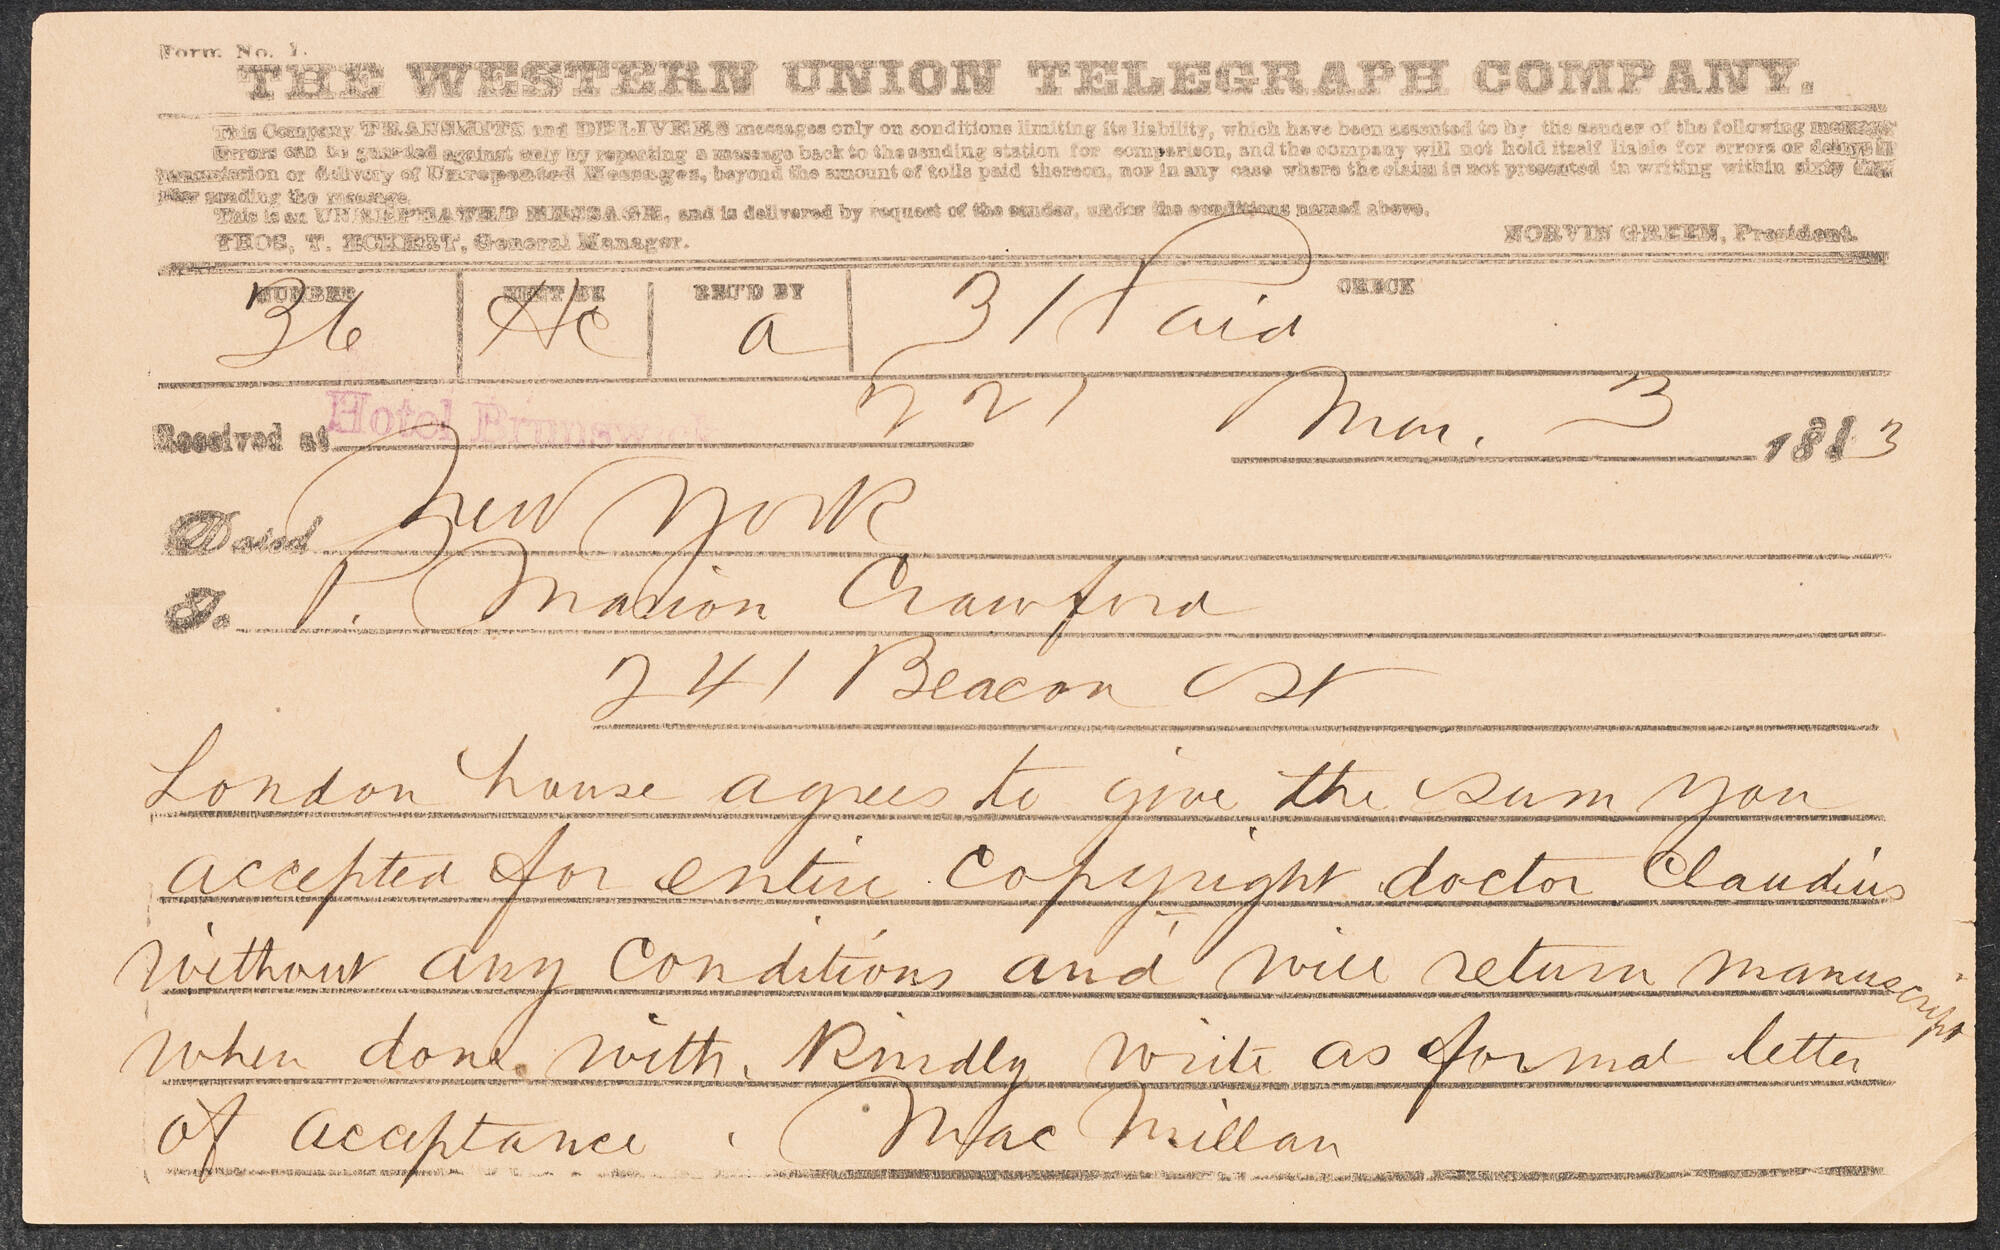 Form No. 1.
THE WESTERN UNION TELEGRAPH COMPANY.
This Company TRANSMITS and DELIVERS messages only on conditions limiting its liability, which have been assented to by the sender of the following message
Errors can be guarded against only by repeating a message back to the sending station for comparison, and the company will not hold itself liable for errors or delays in
transmission or delivery of Unrepeated Messages, beyond the amount of tolls paid thereon, nor in any case where the claim is not presented in writing within sixty days
after sending the message.
This is an UNREPEATED MESSAGE, and is delivered by request of the sender, under the conditions named above.
THOS. T. ECKERT, General Manager. NORVIN GREEN, President.
NUMBER SENT BY REC'D BY CHECK
36 a 31 Paid
Received at Hotel Brunswick 227 Mar. 3 1883
Dated New York
To F. Marion Crawford
241 Beacon St
London house agrees to give the sum you
accepted for entire copyright doctor Claudius
without any conditions and will return manuscript
when done with. Kindly write as formal letter
of acceptance. MacMillan